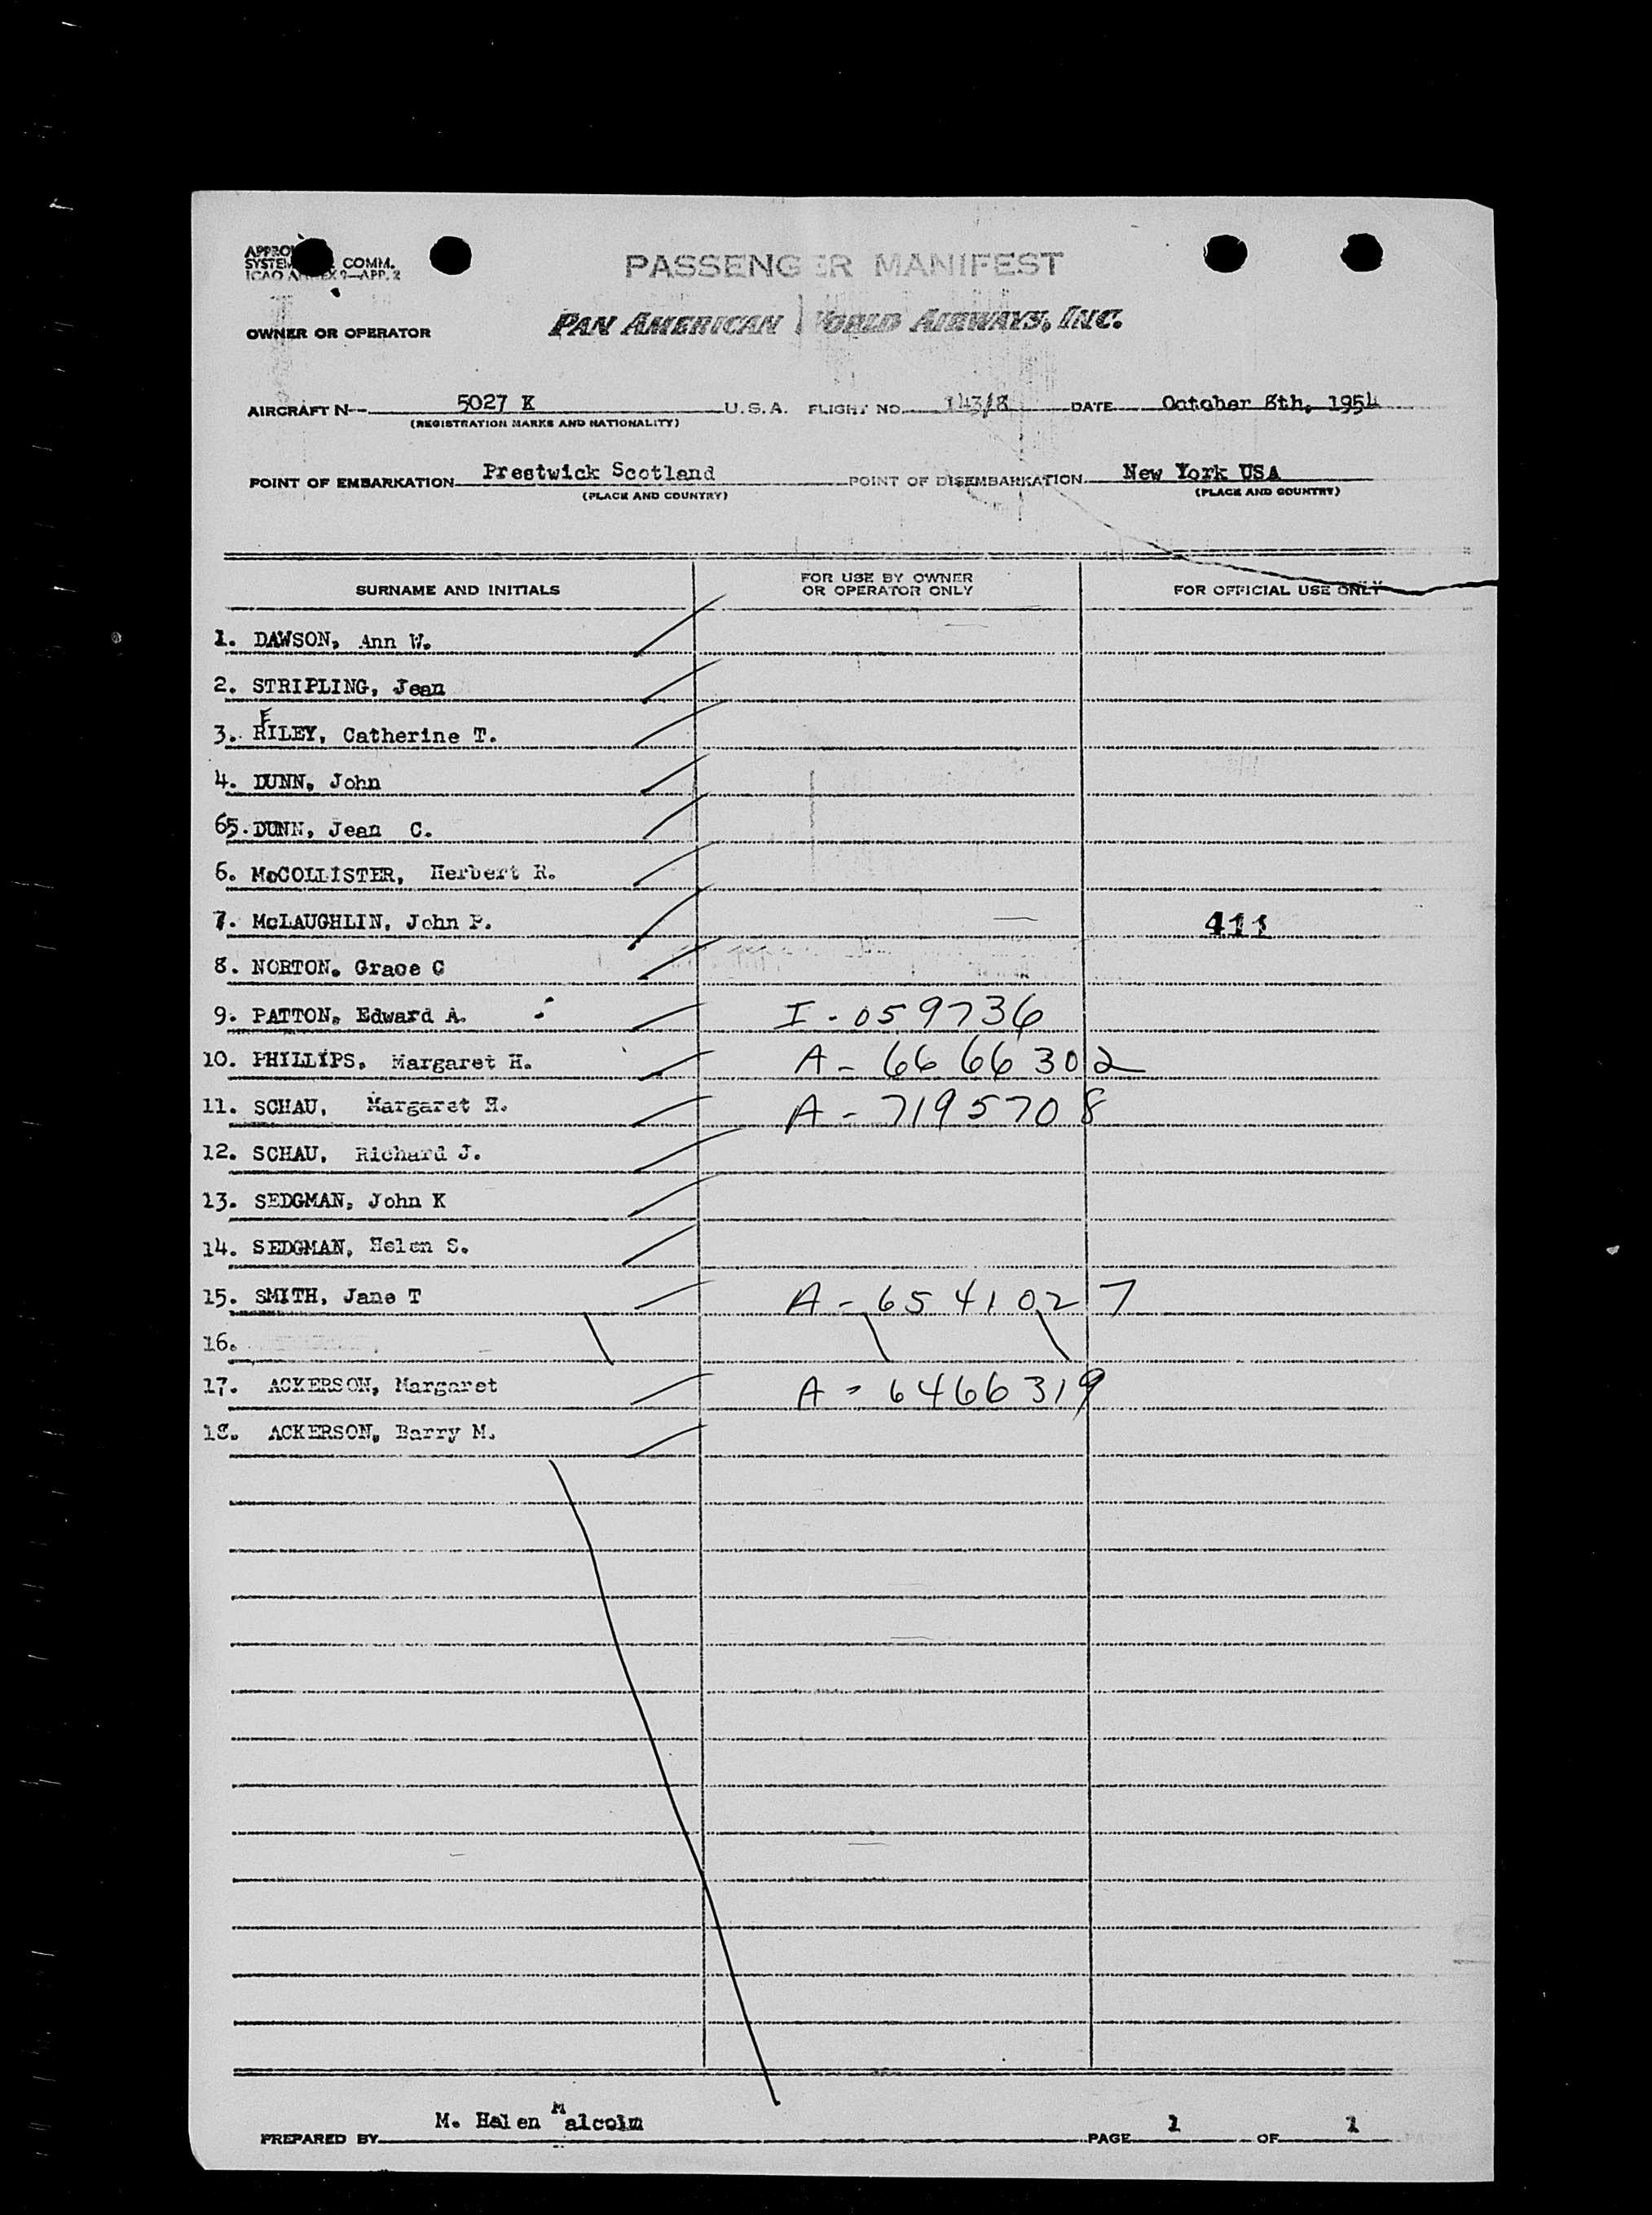 COMM.
PASSENGER MANIFEST
OWNER OR OPERATOR PAN AMERICAN WORLD AIRWAYS, INC.
AIRCRAFT N-- 5027 K U.S.A. FLIGHT NO. 143/8 DATE October 8th, 1954
(REGISTRATION MARKS AND NATIONALITY)
POINT OF EMBARKATION Prestwick Scotland POINT OF DISEMBARKATION New York USA
(PLACE AND COUNTRY) (PLACE AND COUNTRY)
SURNAME AND INITIALS FOR USE BY OWNER OR OPERATOR ONLY FOR OFFICIAL USE ONLY
1. DAWSON, Ann W.
2. STRIPLING, Jean
3. RILEY, Catherine T.
4. DUNN, John
65. DUNN, Jean C.
6. McCOLLISTER, Herbert R.
7. McLAUGHLIN, John P. 411
8. NORTON. Grace C
9. PATTON, Edward A. I - 059736
10. PHILLIPS, Margaret H. A - 6666302
11. SCHAU, Margaret H. A - 7195708
12. SCHAU, Richard J.
13. SEDGMAN, John K
14. SEDGMAN, Helen S.
15. SMITH, Jane T A - 6541027
16.
17. ACKERSON, Margaret A - 6466319
18. ACKERSON, Barry M.
PREPARED BY M. Helen Malcolm PAGE 1 OF 1